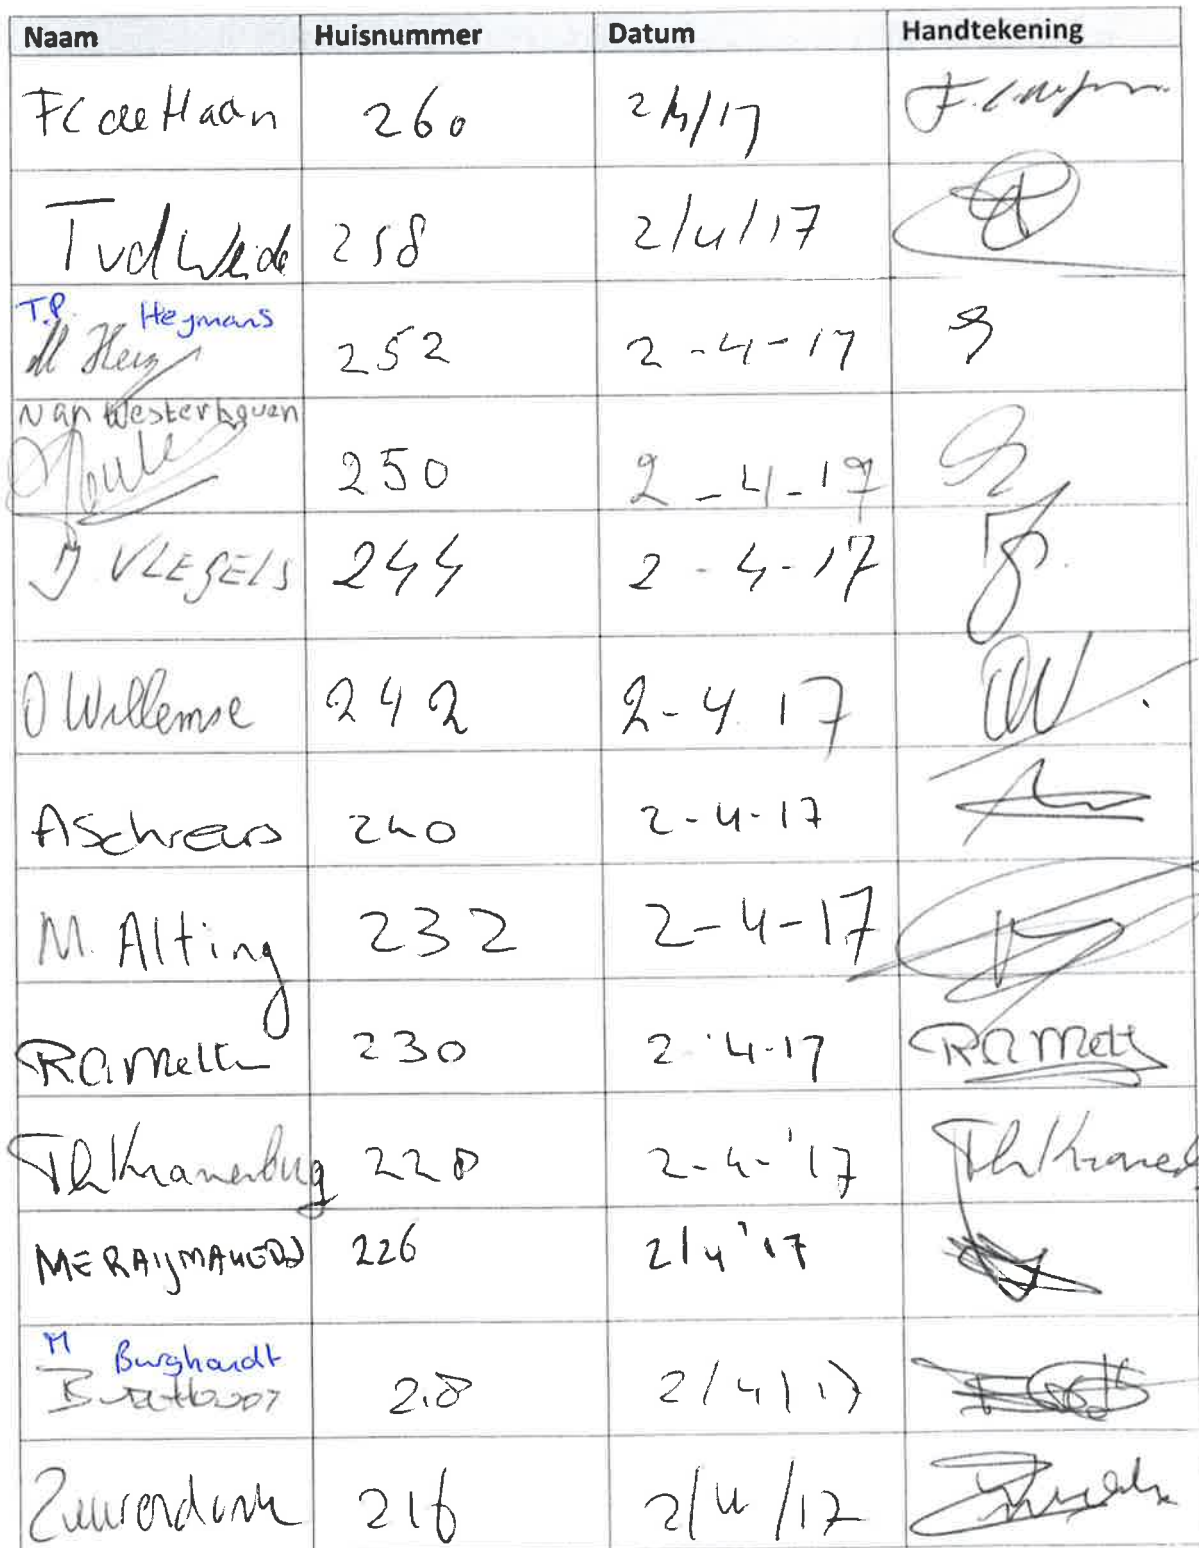 Naam Huisnummer Datum Handtekening
FC de Haan 260 2/4/17
T vd Weide 258 2/4/17
T.P. Heymans
M Hey 252 2-4-17
N van Westerhoven
250 2-4-17
J VLEGELS 244 2-4-17
O Willemse 242 2-4 17 OW
A Schreurs 240 2-4-17
M. Alting 232 2-4-17
R.A. Melt 230 2-4-17 R.A. Melt
Th Kranenburg 228 2-4-'17 Th Kranen
ME RAIJMAKERS 226 2/4 '17
M Burghardt
218 2/4/17
216 2/4/17